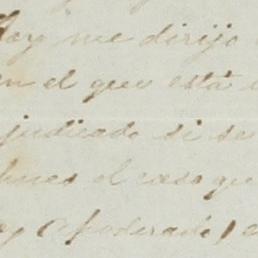 Hoy me dirijo
en el que está
judicado si se
pues el caso qu
oy Apoderado,